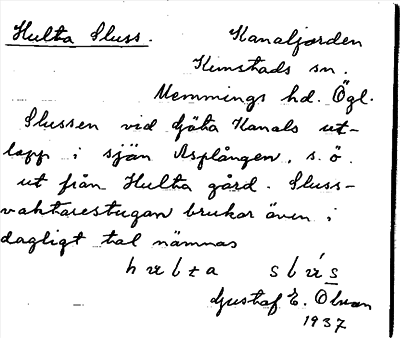 Hulta Sluss. Kanaljorden
Kimstads sn.
Memmings hd. Ögl.
Slussen vid Göta Kanals ut-
lopp i sjön Asplången, s. ö.
ut från Hulta gård. Sluss-
vaktarestugan brukar även i
dagligt tal nämnas
Gustaf E.
1937